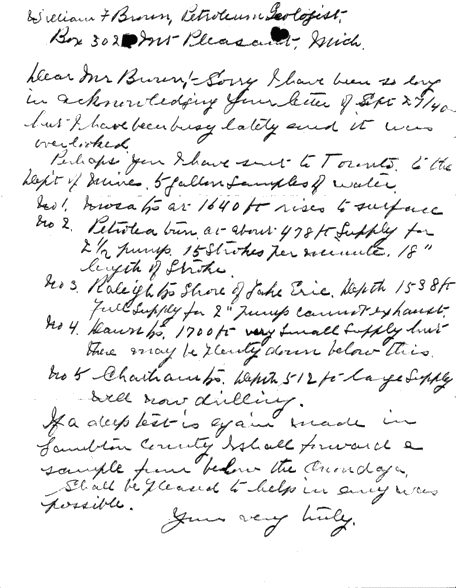 William F Brown, Petroleum Geologist,
Box 302 Mt Pleasant, Mich.
Dear Mr Brown:- Sorry I have been so long
in acknowledging your letter of Sept 27/40
but I have been busy lately and it was
overlooked.
Perhaps you I have sent to Toronto. to the
Dep't of Mines. 5 gallon samples of water.
No 1. Mosa tp at 1640 ft rises to surface
No 2. Petrolea at about 478 ft Supply for
2 1/2 pump. 15 Strokes per minute. 18"
length of Stroke.
No 3. Raleigh tp Shore of Lake Erie. Depth 1538 ft
full Supply for 2" pump cannot exhaust.
No 4. Dawn tp. 1700 ft very small Supply but
there may be plenty down below this.
No 5 Chatham tp. Depth 512 ft large Supply
well now drilling.
If a deep test is again made in
Lambton County I shall forward a
sample from below the Onondaga.
Shall be pleased to help in any way
possible.
Yours very truly,